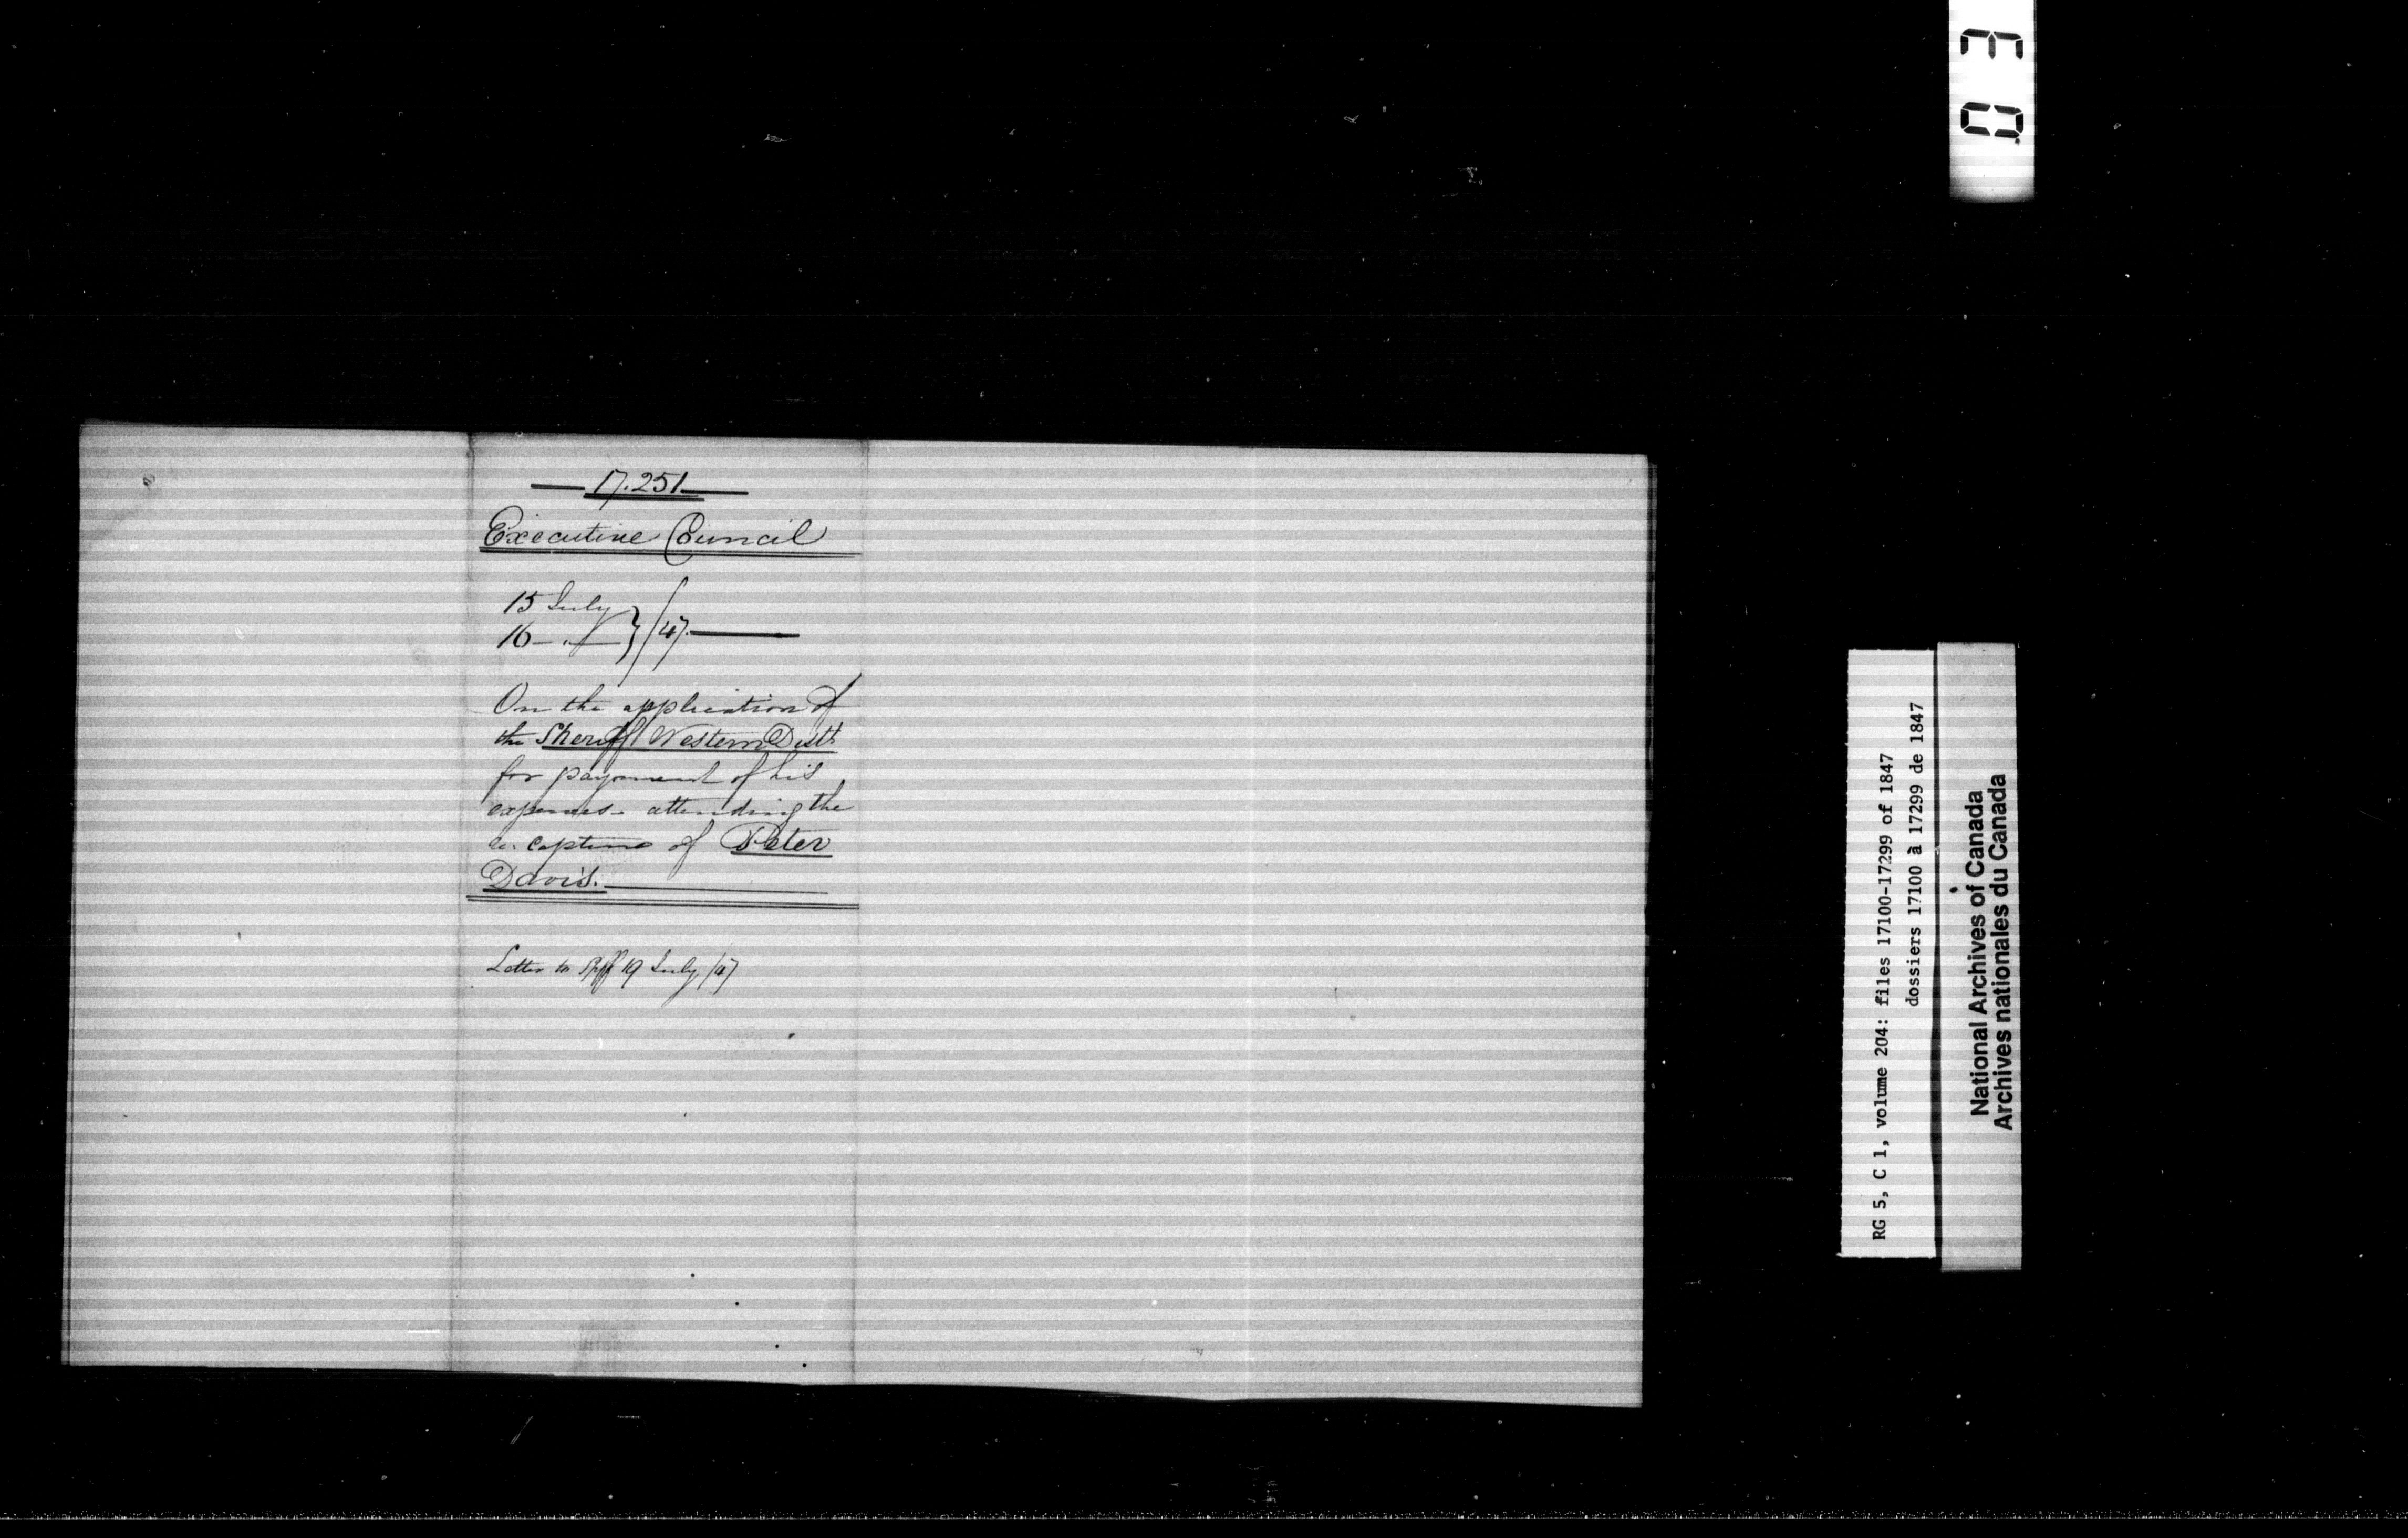 17.251
Executive Council
15 July
16 — " — } /47
On the application of
the Sheriff Western Distt
for payment of his
expenses attending the
re-capture of Peter
Davis.
Letter to Shff 19 July /47
RG 5, C 1, volume 204: files 17100-17299 of 1847
dossiers 17100 à 17299 de 1847
National Archives of Canada
Archives nationales du Canada